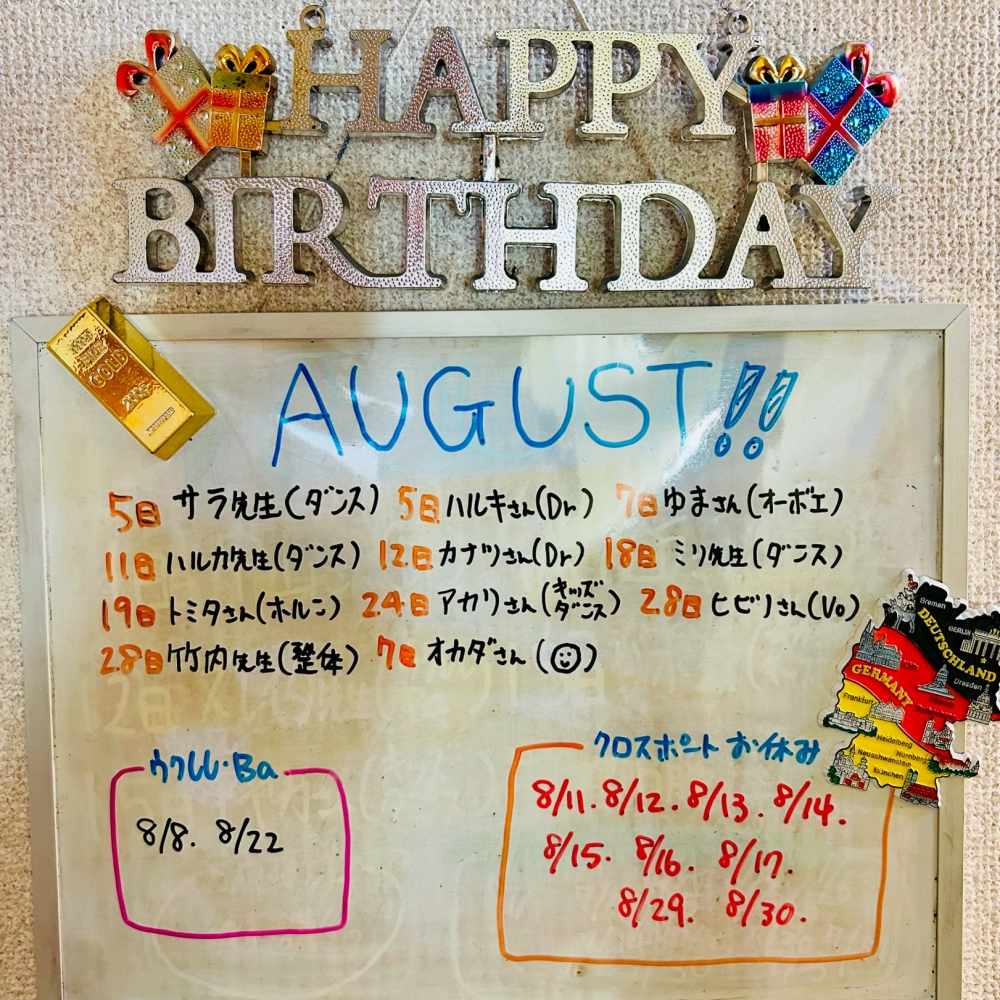 HAPPY
BIRTHDAY
GOLD
AUGUST!!
5日 サラ先生(ダンス) 5日 ハルキさん(Dr) 7日 ゆまさん(オーボエ)
11日 ハルカ先生(ダンス) 12日 カナツさん(Dr) 18日 ミリ先生(ダンス)
19日 トミタさん(ホルン) 24日 アカリさん(キッズダンス) 28日 ヒビノさん(Vo)
28日 竹内先生(整体) 7日 オカダさん(☺)
Bremen
BERLIN
DEUTSCHLAND
Dresden
GERMANY
Frankfurt
Heidelberg
Nürnberg
Neuschwanstein
München
ウクレレ・Ba
8/8. 8/22
クロスポート お休み
8/11. 8/12. 8/13. 8/14.
8/15. 8/16. 8/17.
8/29. 8/30.